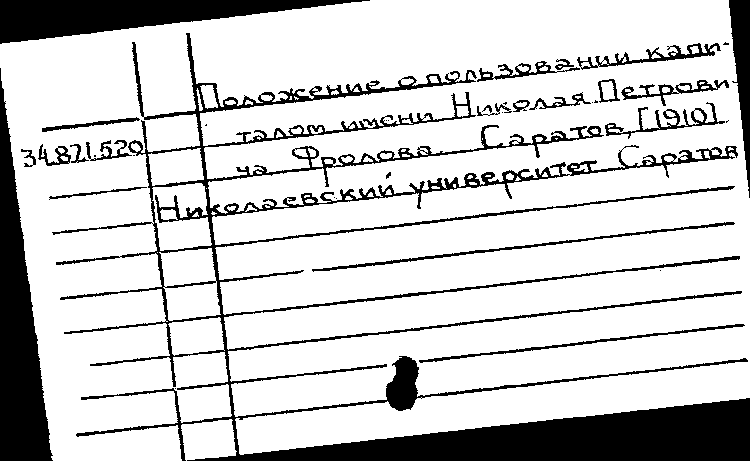 Положение о пользовании капи-
талом имени Николая Петрови-
34.871.520
ча Фролова. Саратов, [1910]
Николаевский университет Саратов